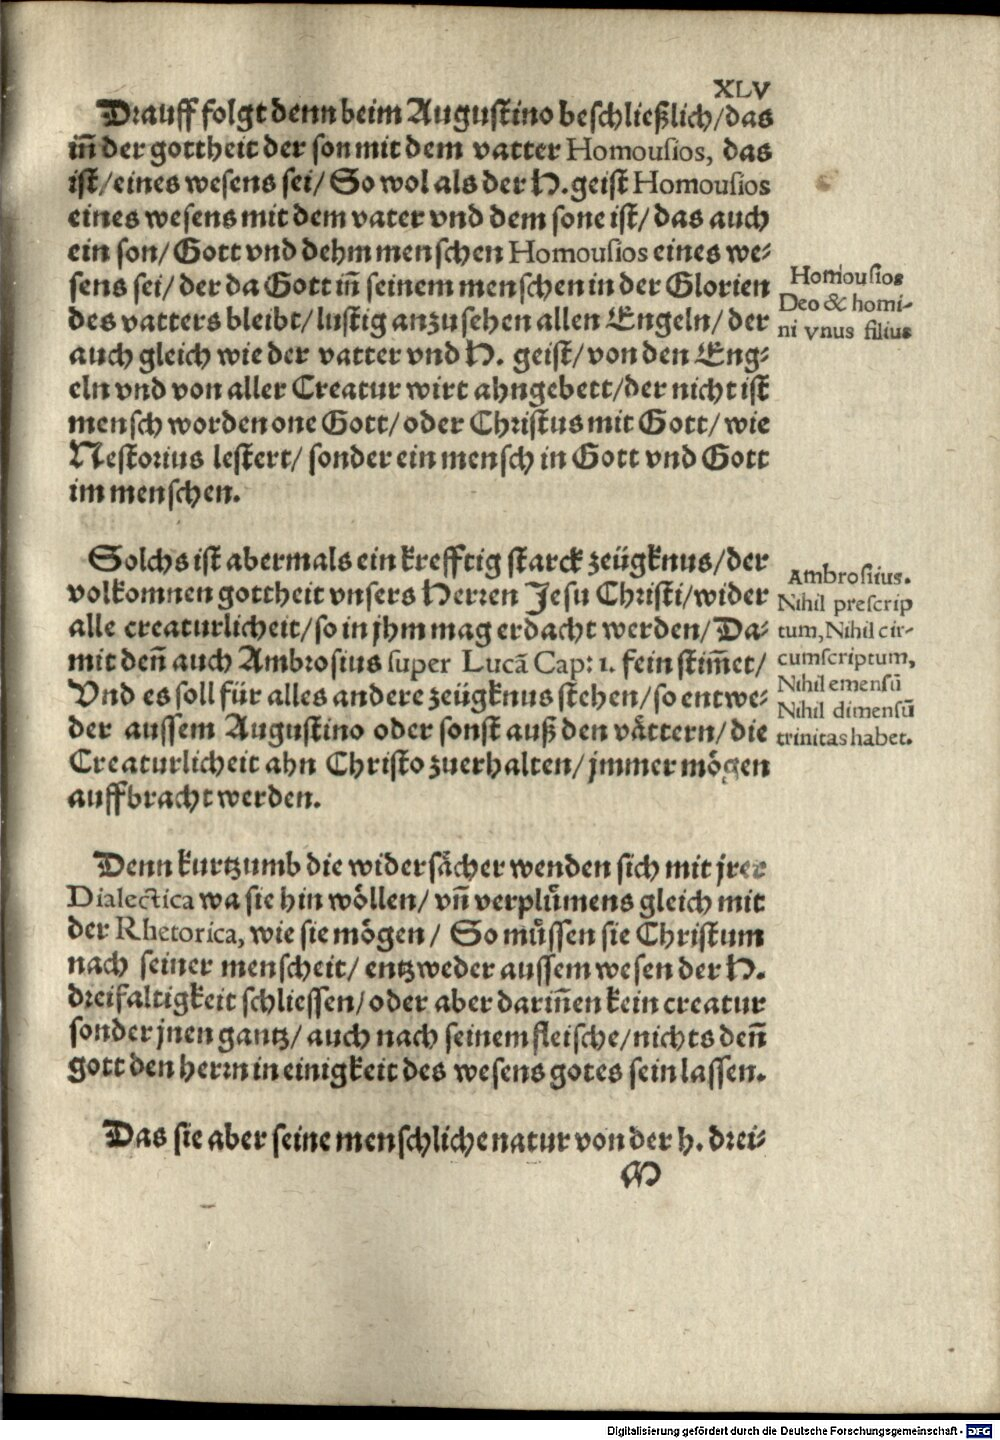 XLV
Drauff folgt denn beim Augustino beschließlich/das
iñ der gottheit der son mit dem vatter Homousios, das
ist/eines wesens sei/ So wol als der H. geist Homousios
eines wesens mit dem vater vnd dem sone ist/ das auch
ein son/ Gott vnd dehm menschen Homousios eines we⸗
sens sei/ der da Gott iñ seinem menschen in der Glorien
des vatters bleibt/ lustig anzusehen allen Engeln/ der
auch gleich wie der vatter vnd H. geist/ von den Eng⸗
eln vnd von aller Creatur wirt ahngebett/der nicht ist
mensch worden one Gott/ oder Christus mit Gott/ wie
Nestorius lestert/ sonder ein mensch in Gott vnd Gott
im menschen.
Homousios
Deo & homi-
ni vnus filius
Solchs ist abermals ein krefftig starck zeügknus/der
volkomnen gottheit vnsers Herren Jesu Christi/wider
alle creaturlicheit/ so in jhm mag erdacht werden/ Da⸗
mit deñ auch Ambrosius super Lucā Cap: 1. fein stim̃et/
Vnd es soll für alles andere zeügknus stehen/ so entwe⸗
der aussem Augustino oder sonst auß den vättern/ die
Creaturlicheit ahn Christo zuerhalten/ jmmer mögen
auffbracht werden.
Ambrosius.
Nihil prescrip
tum, Nihil cir-
cumscriptum,
Nihil emensū
Nihil dimensū
trinitas habet.
Denn kurtzumb die widersächer wenden sich mit jrer
Dialectica wa sie hin wöllen/ vñ verplümens gleich mit
der Rhetorica, wie sie mögen/ So müssen sie Christum
nach seiner menscheit/ entzweder aussem wesen der H.
dreifaltigkeit schliessen/ oder aber dariñen kein creatur
sonder jnen gantz/ auch nach seinem fleische/ nichts deñ
gott den herrn in einigkeit des wesens gotes sein lassen.
Das sie aber seine menschliche natur von der h. drei⸗
M
Digitalisierung gefördert durch die Deutsche Forschungsgemeinschaft - DFG